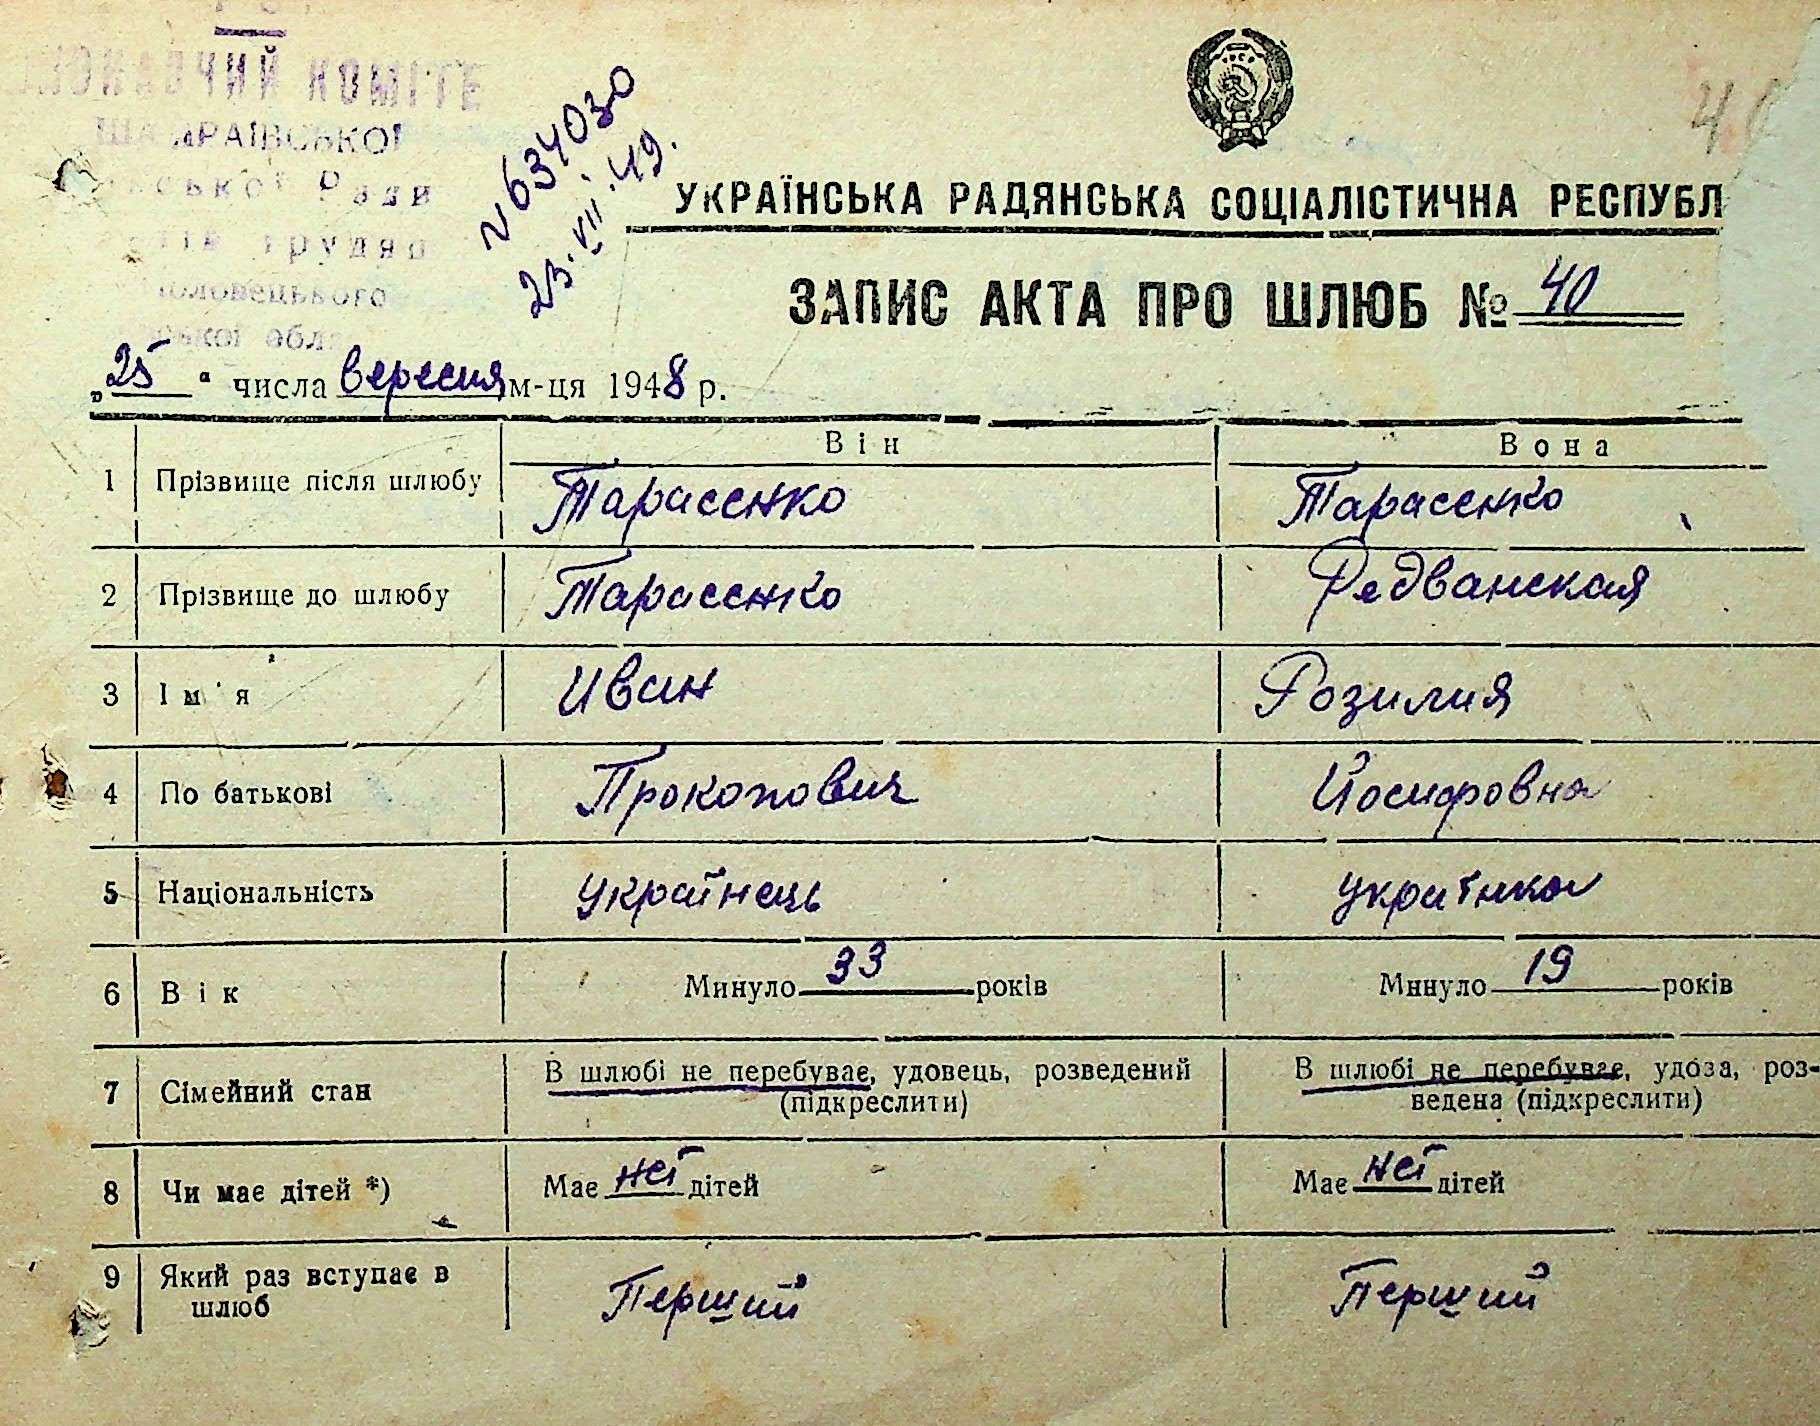 КОМІТЕ
Ради
№634030
23.VII.49.
УКРАЇНСЬКА РАДЯНСЬКА СОЦІАЛІСТИЧНА РЕСПУБЛ
ЗАПИС АКТА ПРО ШЛЮБ № 40
„25" числа вересня м-ця 1948 р.
Він Вона
1 Прізвище після шлюбу Тарасенко Тарасенко
2 Прізвище до шлюбу Тарасенко Редванская
3 Ім'я Иван Розилия
4 По батькові Прокопович Йосифовна
5 Національність українець українка
6 Вік Минуло 33 років Минуло 19 років
7 Сімейний стан В шлюбі не перебуває, удовець, розведений (підкреслити) В шлюбі не перебуває, удова, роз-
ведена (підкреслити)
8 Чи має дітей *) Має неї дітей Має неї дітей
9 Який раз вступає в шлюб Перший Перший